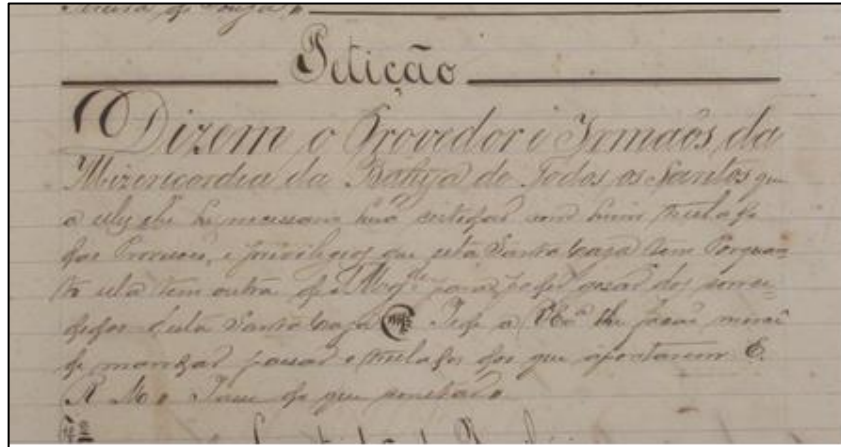 de Souza,
Petição
Dizem o Provedor i Irmaõs, da
Mizericordia da Bahya de Todos os Santos que
a elles he necessario huã certidaõ com hum treslado
das Provisoes, e previlegios que esta Santa Caza tem Porquan-
to esta tem outra de Mag.de para poder gozar dos
desta Santa Caza Pede a lhe faças mercê
de mandar passar o treslado dos que apontarem E.
R. M. Passe do que constar.